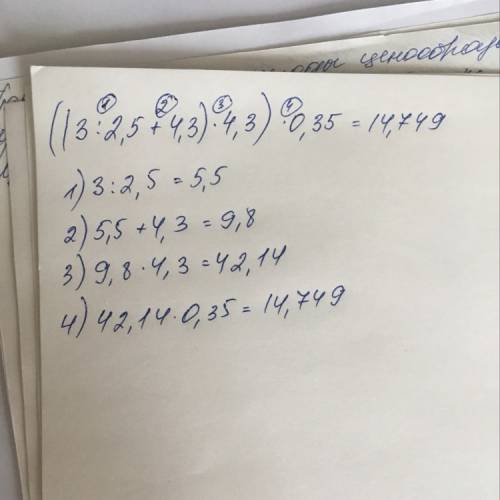 ценообразо
① ② ③ ④
((3:2,5+4,3)·4,3)·0,35=14,749
1) 3:2,5=5,5
2) 5,5+4,3=9,8
3) 9,8·4,3=42,14
4) 42,14·0,35=14,749